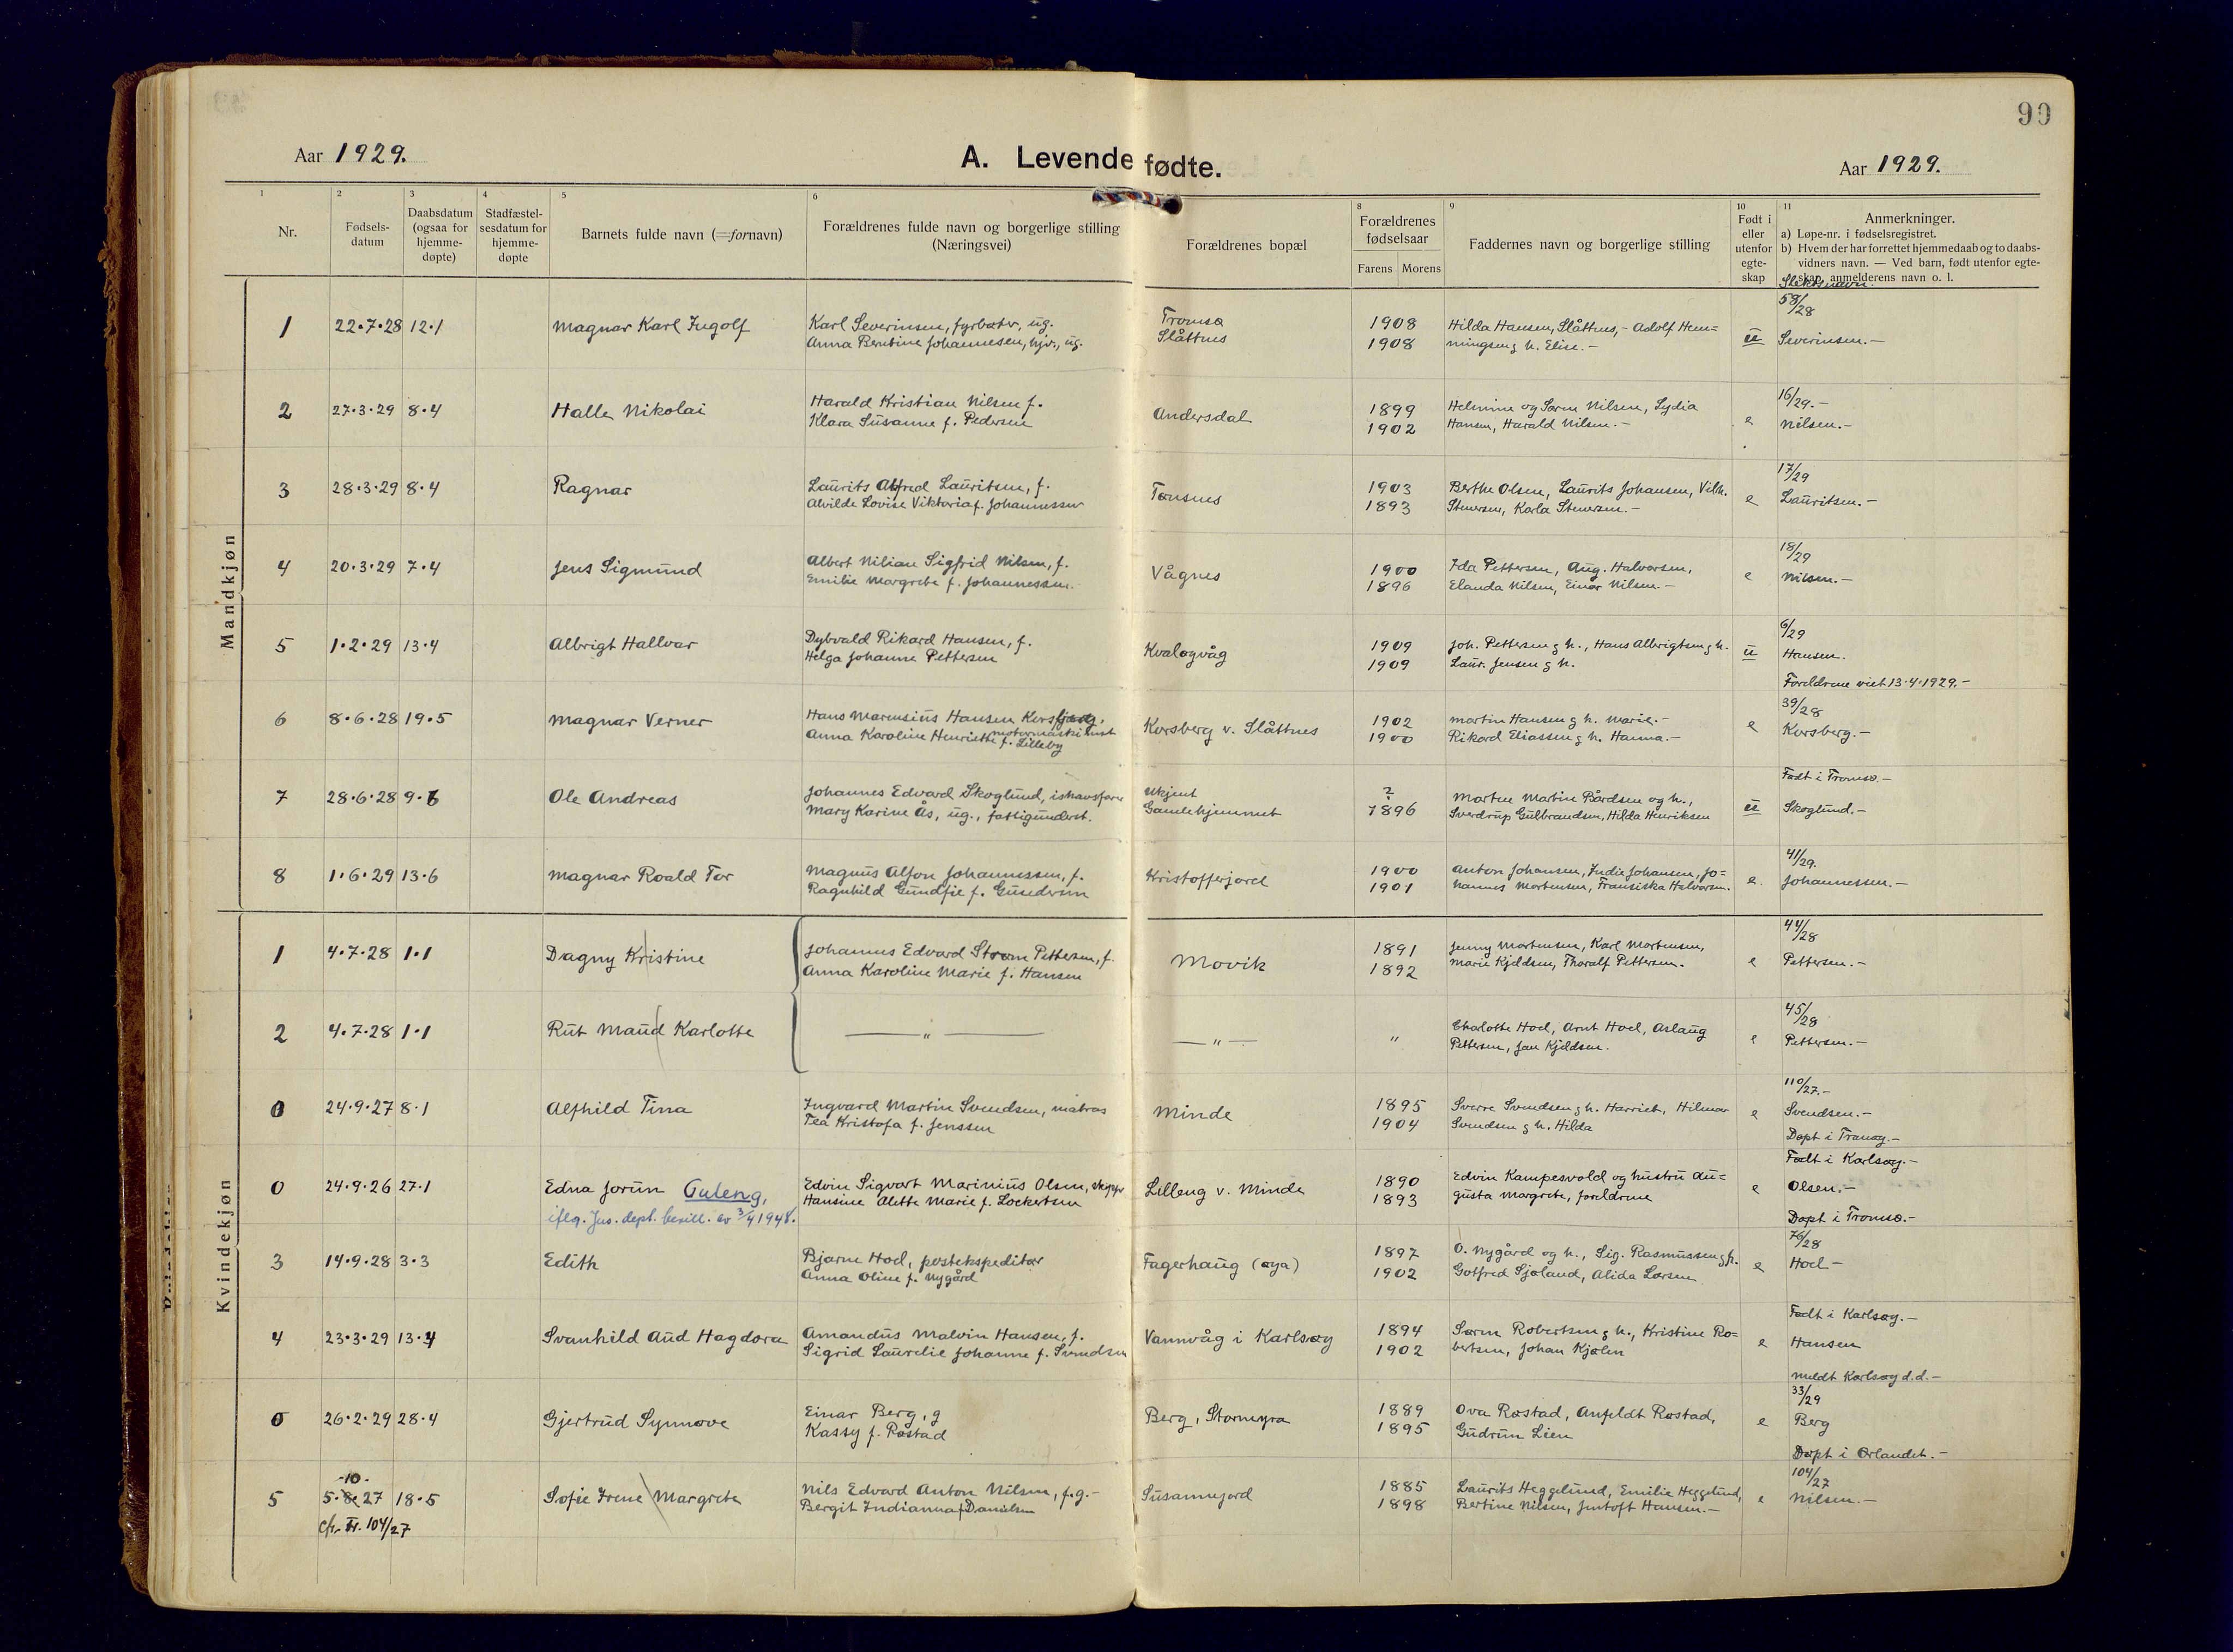 90
Aar 1929.
A. Levende fødte.
Aar 1929.
1 2 3 4 5 6 8 9 10 11
Nr.
Fødsels-
datum
Daabsdatum
(ogsaa for
hjemme-
døpte)
Stadfæstel-
sesdatum for
hjemme-
døpte
Barnets fulde navn (=fornavn)
Forældrenes fulde navn og borgerlige stilling
(Næringsvei)
Forældrenes bopæl
Forældrenes
fødselsaar
Farens Morens
Faddernes navn og borgerlige stilling
Født i
eller
utenfor
egte-
skap
Anmerkninger.
a) Løpe-nr. i fødselsregistret.
b) Hvem der har forrettet hjemmedaab og to daabs-
vidners navn. — Ved barn, født utenfor egte-
skap, anmelderens navn o. l.
Slektsnavn.
Mandkjøn
58/28
1 22.7.28 12.1 Magnar Karl Ingolf Karl Severinsen, fyrbøter, ug. Tromsø 1908 Hilda Hansen, Slåttnes, - Adolf Hem=
Anna Berntine Johannesen, hjv., ug. Slåttnes 1908 mingsen g h. Elise. - u Severinsen. -
16/29. -
2 27.3.29 8.4 Halle Nikolai Harald Kristian Nilsen f. Andersdal 1899 Helmine og Søren Nilsen, Lydia
Klara Susanne f. Pedersen 1902 Hansen, Harald Nilsen. - e Nilsen. -
17/29
3 28.3.29 8.4 Ragnar Laurits Alfred Lauritsen, f. Tønsnes 1903 Berthe Olsen, Laurits Johansen, Vilh.
Alvilde Lovise Viktoria f. Johannessen 1893 Stenersen, Karla Stenersen. - e Lauritsen. -
18/29
4 20.3.29 7.4 Jens Sigmund Albert Nilian Sigfrid Nilsen, f. Vågnes 1900 Ida Pettersen, Aug. Halvorsen,
Emilie Margrete f. Johannessen. 1896 Elanda Nilsen, Einar Nilsen. - e Nilsen. -
6/29
5 1.2.29 13.4 Albrigt Hallvar Dybvald Rikard Hansen, f. Kvaløyvåg 1909 Joh. Pettersen g h., Hans Albrigtsen g h.
Helga Johanne Pettersen 1909 Laur. Jensen g h. u Hansen.
Foreldrene viet 13.4.1929. -
39/28
6 8.6.28 19.5 Magnar Verner Hans Marensius Hansen Korsberg, motormaskinist Korsberg v. Slåttnes 1902 Martin Hansen g h. Marie. -
Anna Karoline Henriette f. Lilleby 1900 Rikard Eliassen g h. Hanna. - e Korsberg. -
Født i Tromsø. -
7 28.6.28 9.6 Ole Andreas Johannes Edvard Skoglund, ishavsfarer Ukjent ? Morten Martin Bårdsen og h.,
Mary Karine Ås, ug., fattigunderst. Gamlehjemmet 1896 Sverdrup Gulbrandsen, Hilda Henriksen u Skoglund. -
41/29.
8 1.6.29 13.6 Magnar Roald Tor Magnus Alfon Johannessen, f. Kristofferjord 1900 Anton Johansen, Indie Johansen, Jo=
Ragnhild Gundfie f. Gundersen 1901 hannes Mortensen, Fransiska Halvorsen. e. Johannessen. -
Kvindekjøn
44/28
1 4.7.28 1.1 Dagny Kristine Johannes Edvard Strøm Pettersen, f. Movik 1891 Jenny Mortensen, Karl Mortensen,
Anna Karoline Marie f. Hansen 1892 Marie Kjeldsen, Thoralf Pettersen. e Pettersen. -
45/28
2 4.7.28 1.1 Rut Maud Karlotte — " — — " — " Charlotte Hoel, Arnt Hoel, Aslaug
Pettersen, Jan Kjeldsen. e Pettersen. -
110/27. -
0 24.9.27 8.1 Alfhild Tina Ingvard Martin Svendsen, matros Minde 1895 Sverre Svendsen g h. Harriet, Hilmar
Tea Kristofa f. Jenssen 1904 Svendsen g h. Hilda e Svendsen. -
Døpt i Tranøy. -
Født i Karlsøy. -
0 24.9.26 27.1 Edna Jorun Guleng, Edvin Sigvart Marinius Olsen, skipsfør Lilleng v. Minde 1890 Edvin Kampesvold og hustru Au=
iflg. Jus. dept. bevill. av 3/4 1948. Hansine Alette Marie f. Lockertsen 1893 gusta Margrete, foreldrene e Olsen. -
Døpt i Tromsø. -
76/28
3 14.9.28 3.3 Edith Bjarne Hoel, postekspeditør Fagerhaug (øya) 1897 O. Nygård og h., Sig. Rasmussen g h.
Anna Oline f. Nygård 1902 Gotfred Sjøland, Alida Larsen e Hoel -
Født i Karlsøy. -
4 23.3.29 13.4 Svanhild Aud Hagdora Amandus Malvin Hansen, f. Vannvåg i Karlsøy 1894 Søren Robertsen g h., Kristine Ro=
Sigrid Laurelie Johanne f. Svendsen 1902 bertsen, Johan Kjølen e Hansen
Meldt Karlsøy d.d. -
33/29
0 26.2.29 28.4 Gjertrud Synnøve Einar Berg, g Berg, Stormyra 1889 Ova Røstad, Anfeldt Røstad,
Kassy f. Røstad 1895 Gudrun Lien e Berg
Døpt i Ørlandet. -
104/27
-10-
5 5.8.27 18.5 Sofie Irene Margrete Nils Edvard Anton Nilsen, f.g. - Susannejord 1885 Laurits Heggelund, Emilie Heggelund,
cfr. Fr. 104/27 Bergit Indianna f. Danielsen 1898 Bertine Nilsen, Jentoft Hansen. - e Nilsen. -